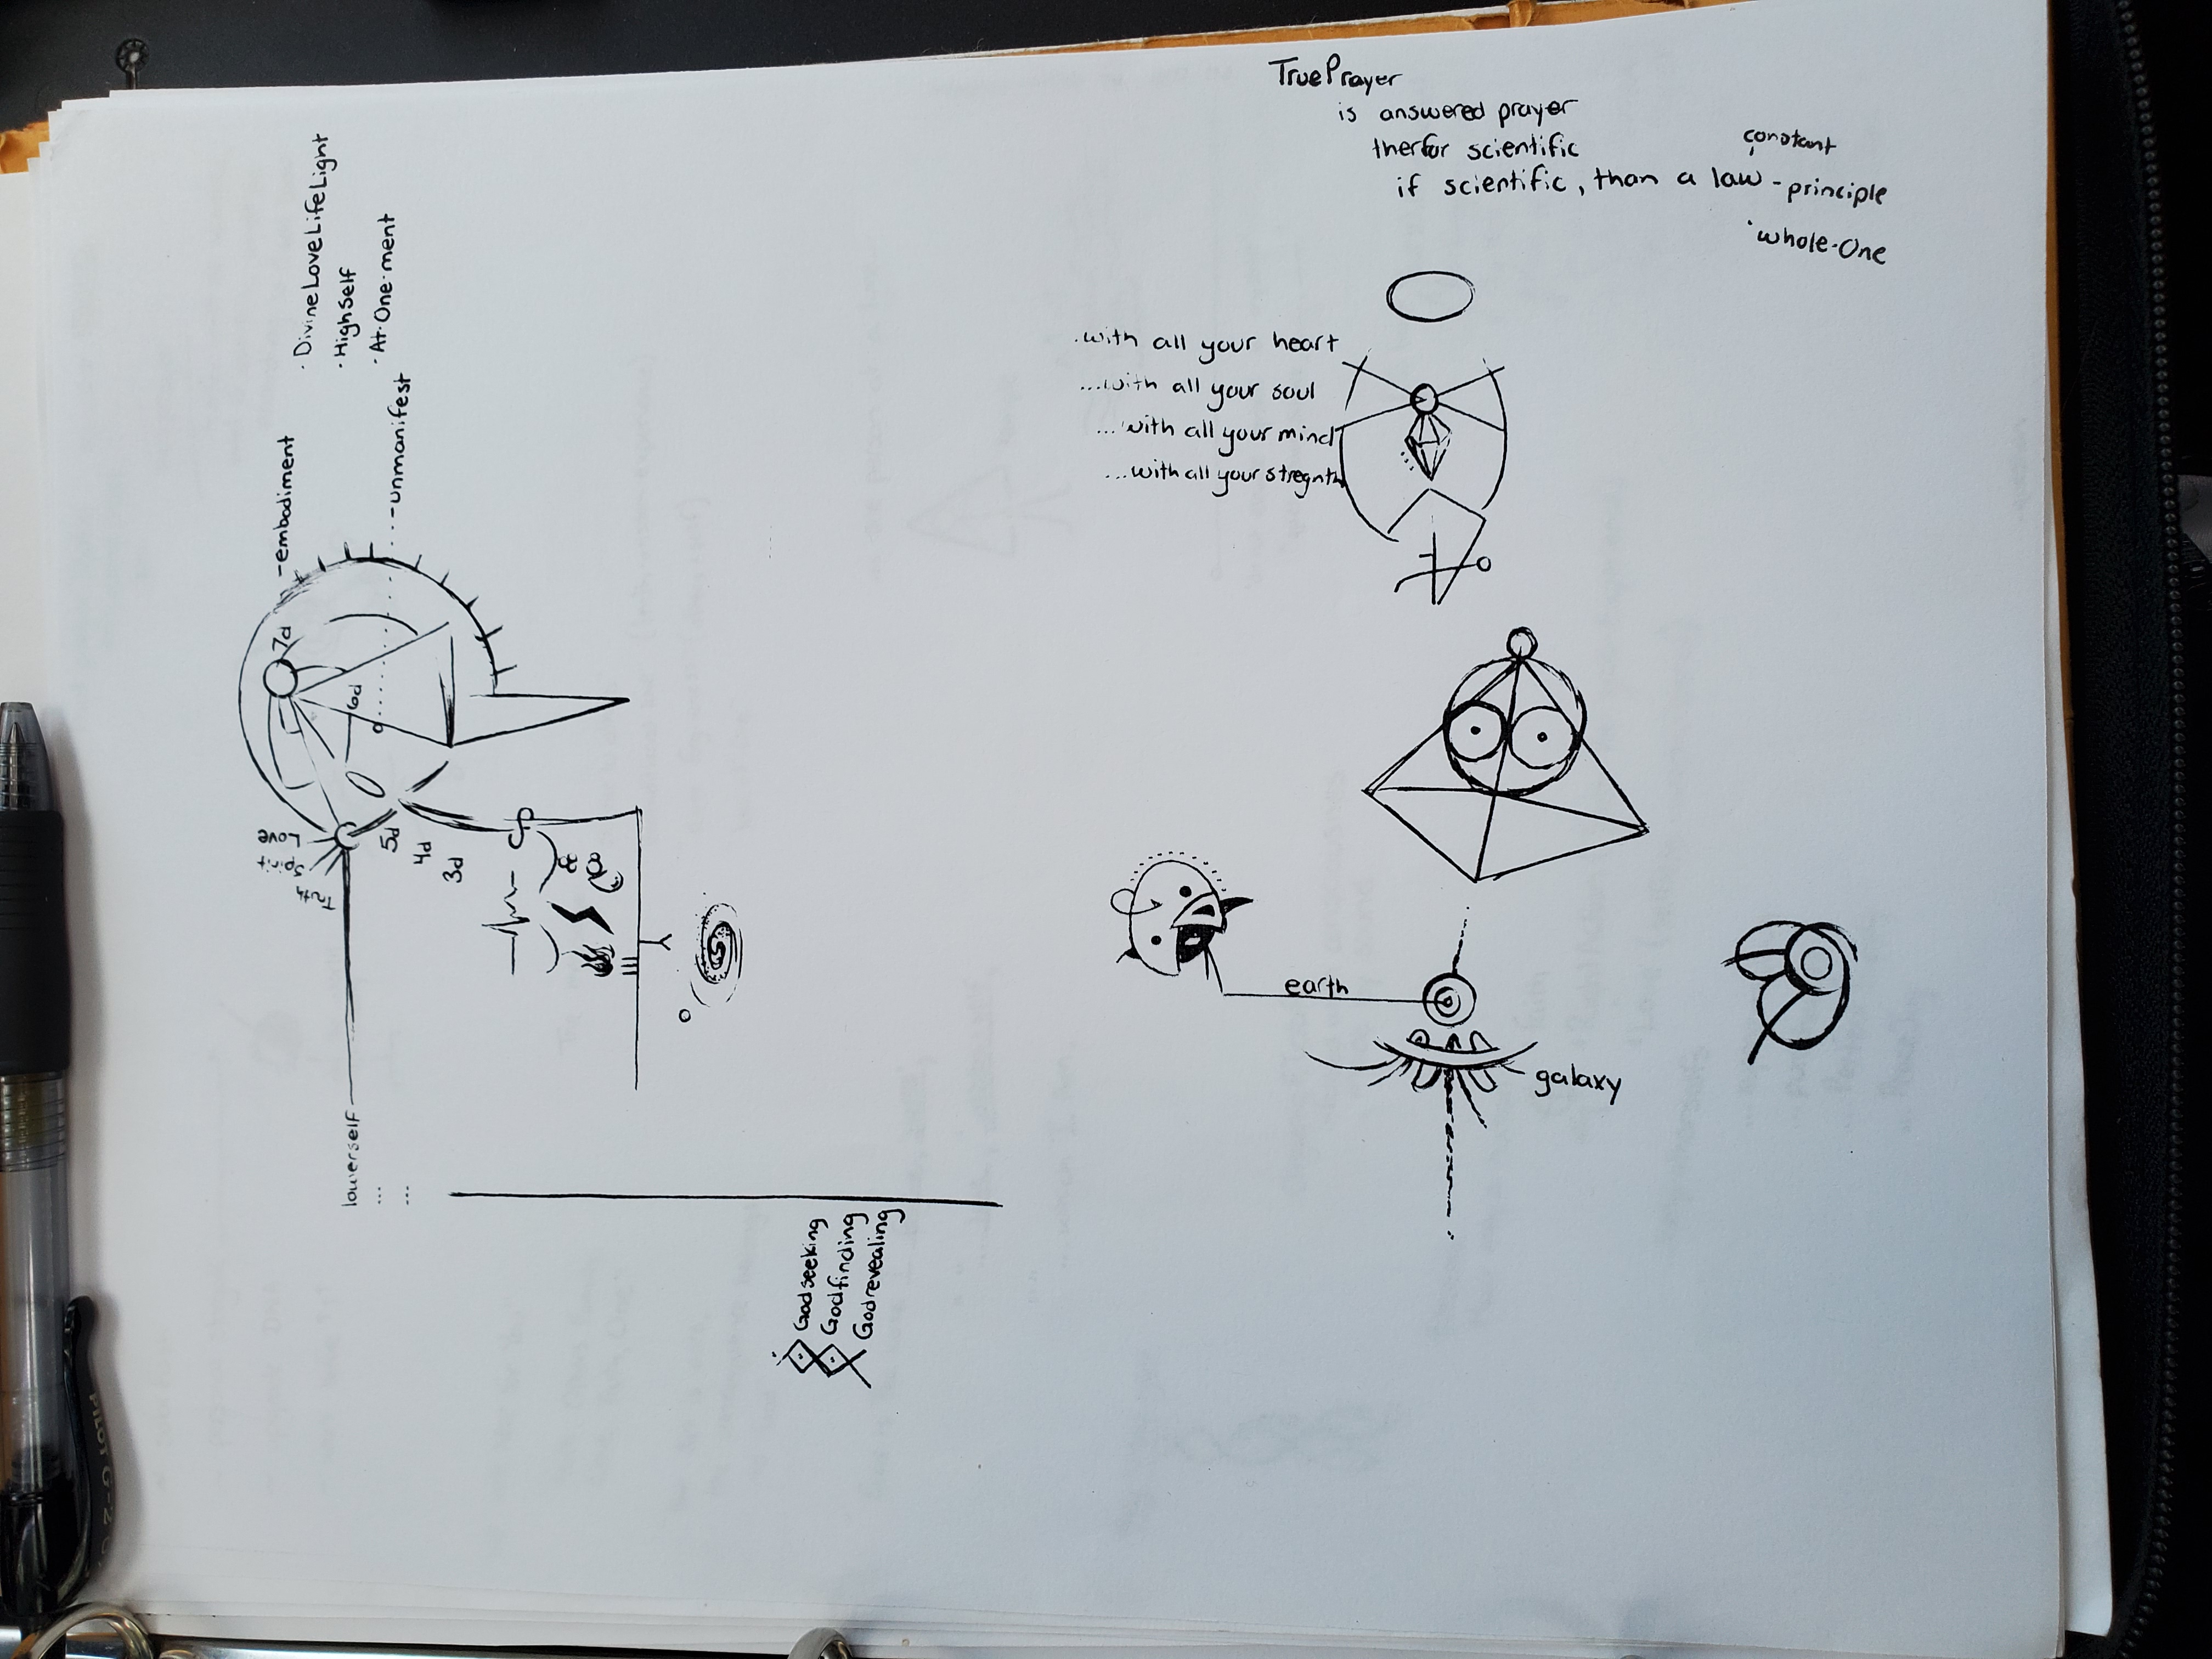 TruePrayer
is answered prayer
therfor scientific
constant
if scientific, than a law - principle
·whole-One
.with all your heart
...with all your soul
...with all your mind
...with all your stregnth
earth
galaxy
·DivineLoveLifeLight
·Highself
·At·One·ment
-embodiment
...-unmanifest
7d
6d
5d
4d
3d
Love
Spirit
Truth
lowerself
...
...
Godseeking
Godfinding
Godrevealing
PILOT G-2 0.7